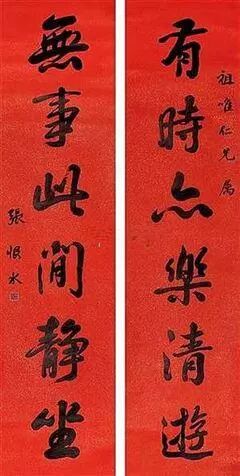 祖唯仁兄属
有時亦樂清遊
無事此閒静坐
張恨水